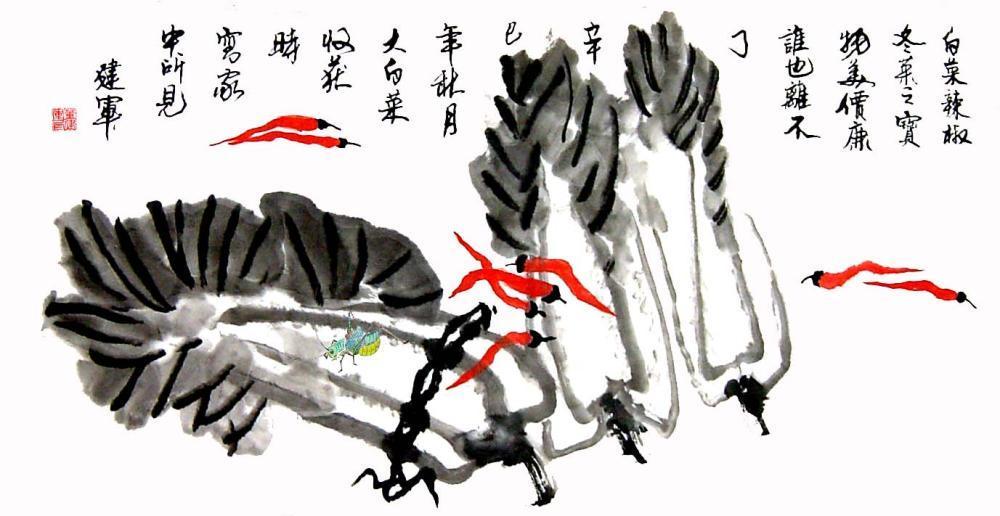 白菜辣椒
冬菜之寶
物美價廉
誰也離不
了
辛
巳
年秋月
大白菜
收获
時
寫家
中所見
建軍